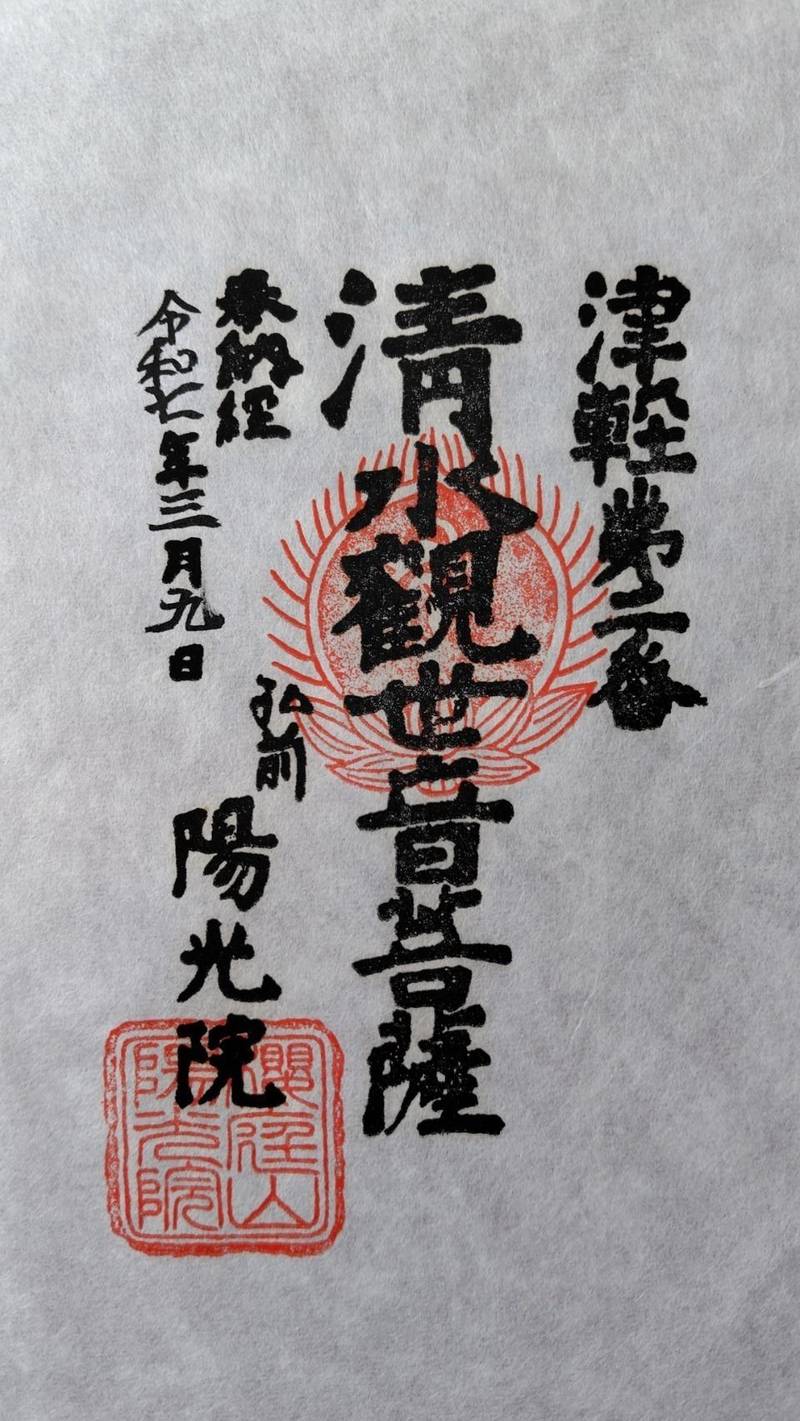 津軽第二番
清水觀世音菩薩
奉納経
令和七年三月九日
弘前
陽光院
櫻庭山
陽光院